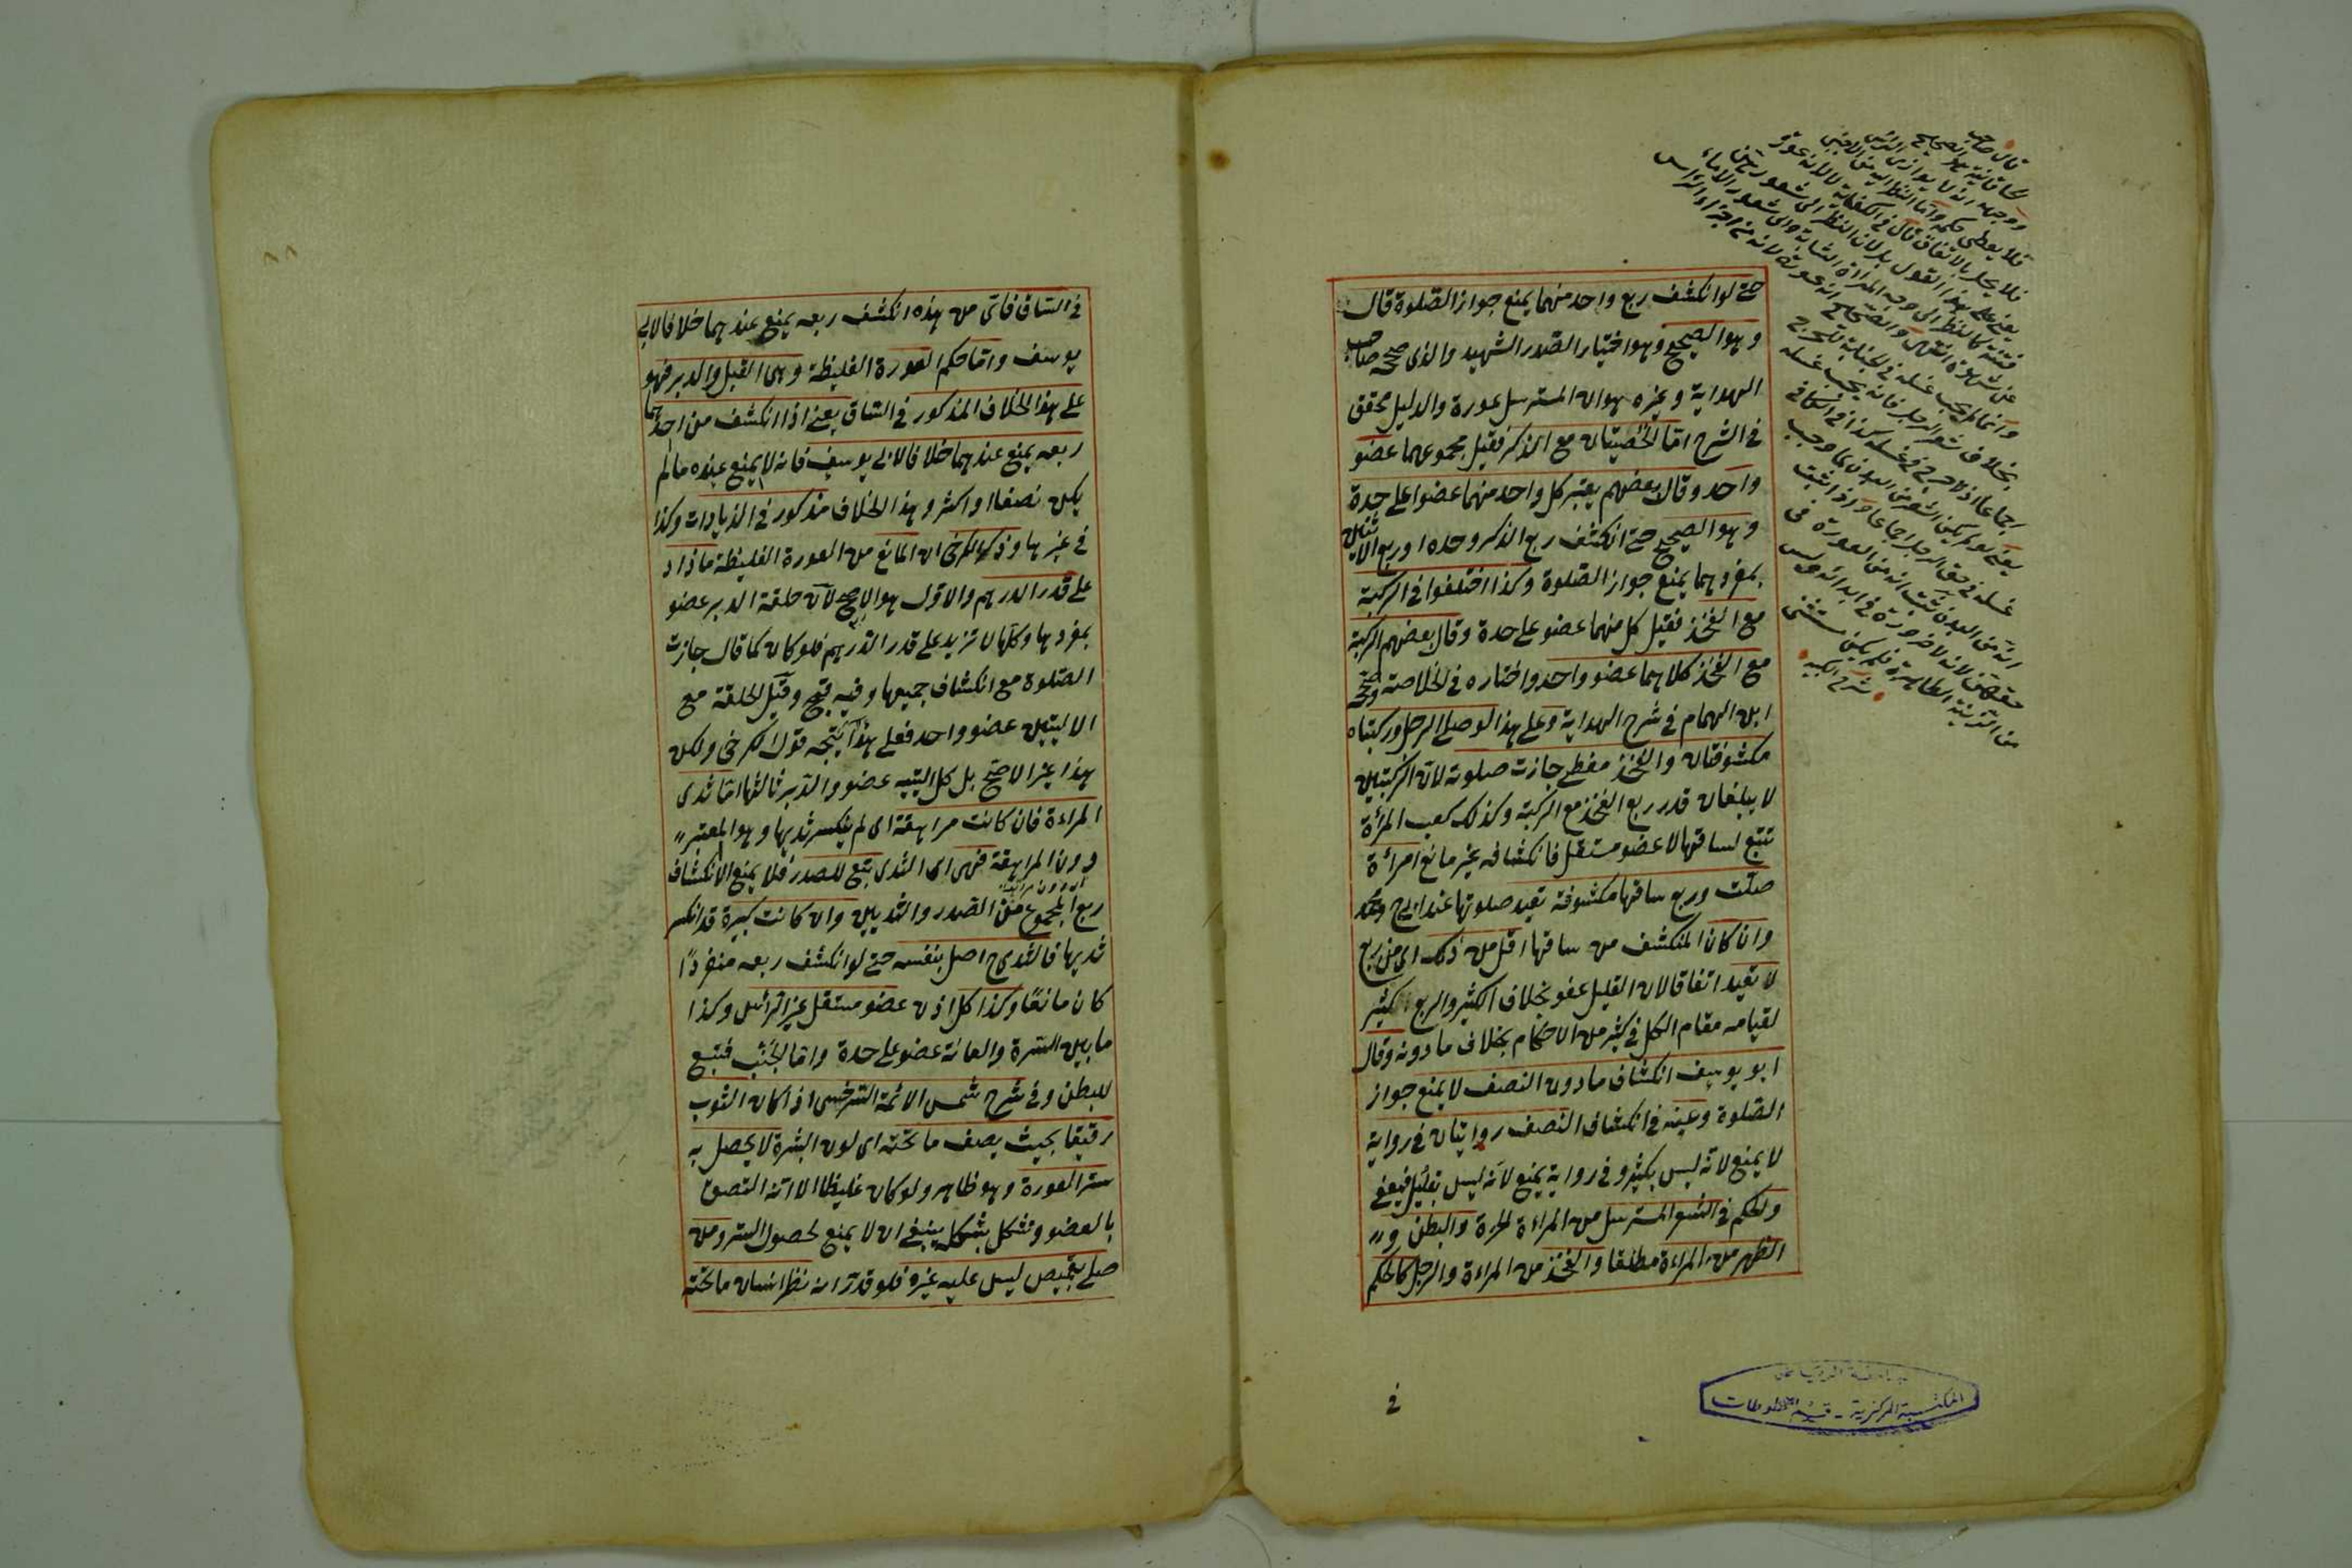 حتى لو انكشف ربع واحد منهما يمنع جواز الصلوة قال
وهو الصحيح وهو اختيار الصدر الشهيد والذى صححه صاحب
الهداية وغيره هو ان المسترسل عورة والدليل محقق
فى الشرح اما الخصيتان مع الذكر فقيل مجموعهما عضو
واحد وقال بعضهم يعتبر كل واحد منهما عضوا على حدة
وهو الصحيح حتى انكشف ربع الذكر وحده او ربع الانثيين
بمفردهما يمنع جواز الصلوة وكذا اختلفوا فى الركبة
مع الفخذ فقيل كل منهما عضو على حدة وقال بعضهم الركبة
مع الفخذ كلاهما عضو واحد واختاره فى الخلاصة وصححه
ابن الهمام فى شرح الهداية وعلى هذا لو صلى الرجل وركبتاه
مكشوفتان والفخذ مغطى جازت صلوته لان الركبتين
لا يبلغان قدر ربع الفخذ مع الركبة وكذلك كعب المرأة
تتبع لساقها لا عضو مستقل فانكشافه غير مانع امرأة
صلت وربع ساقها مكشوفة تعيد صلوتها عند ابى ح ومحمد
وان كان المنكشف من ساقها اقل من ذلك اى من ربع
لا تعيد اتفاقا لان القليل عفو بخلاف الكثير والربع كثير
لقيامه مقام الكل فى كثير من الاحكام بخلاف ما دونه وقال
ابو يوسف انكشاف ما دون النصف لا يمنع جواز
الصلوة وعنه فى انكشاف النصف روايتان فى رواية
لا يمنع لانه ليس بكثير وفى رواية يمنع لانه ليس بقليل فيعفى
والحكم فى الشعر المسترسل من المراءة الحرة والبطن و
الظهر من المراءة مطلقا والفخذ من المراءة والرجل كالحكم
فى
قال صاحب
فلا يحل بالاتفاق قال فى الكفاية
وانما لم يجب غسله فى الجنابة للحرج
بخلاف شعر الرجل فانه يجب غسله
اجماعا اذ لا حرج فى غسله كذا فى الكافى
غسله فى حق الرجل اجماعا واذا ثبت
انه من البدن ثبت انه من العورة فى
حقهن لانه لا ضرورة فى ابدائه وليس
من الزينة الظاهرة فلم يكن مستثنى
شرح الكبير
المكتبة المركزية - قسم المخطوطات
فى الساق فاى من هذه انكشف ربعه يمنع عندهما خلافا لابى
يوسف واما حكم العورة الغليظة وهى القبل والدبر فهو
على هذا الخلاف المذكور فى الساق يعنى اذا انكشف من احدهما
ربعه يمنع عندهما خلافا لابى يوسف فانه لا يمنع عنده ما لم
يكن نصفا او اكثر وهذا الخلاف مذكور فى الزيادات وكذا
فى غيرها وذكر الكرخى ان المانع من العورة الغليظة ما زاد
على قدر الدرهم والاول هو الاصح لان حلقة الدبر عضو
بمفردها وكلها لا تزيد على قدر الدرهم فلو كان كما قال جازت
الصلوة مع انكشاف جميعها وفيه قبح وقيل الحلقة مع
الاليتين عضو واحد فعلى هذا يتجه قول الكرخى ولكن
هذا غير الاصح بل كل الية عضو والدبر ثالثها اما ثدى
المراءة فان كانت مراهقة اى لم ينكسر ثديها وهو المعتبر
دون المراهقة فهى اى الثدى تبع للصدر فلا يمنع الا انكشاف
ربع المجموع من الصدر والثديين وان كانت كبيرة قد انكسر
ثديها فالثدى ح اصل بنفسه حتى لو انكشف ربعه منفردا
كان مانعا وكذا كل اذن عضو مستقل غير الرأس وكذا
ما بين السرة والعانة عضو على حدة واما الجنب فتبع
للبطن وفى شرح شمس الائمة السرخسى اذا كان الثوب
رقيقا بحيث يصف ما تحته اى لون البشرة لا يحصل به
ستر العورة وهو ظاهر ولو كان غليظا الا انه التصق
بالعضو وتشكل بشكله ينبغى ان لا يمنع لحصول الستر ومن
صلى بقميص ليس عليه غيره فلو قدر انه نظر انسان ما تحته